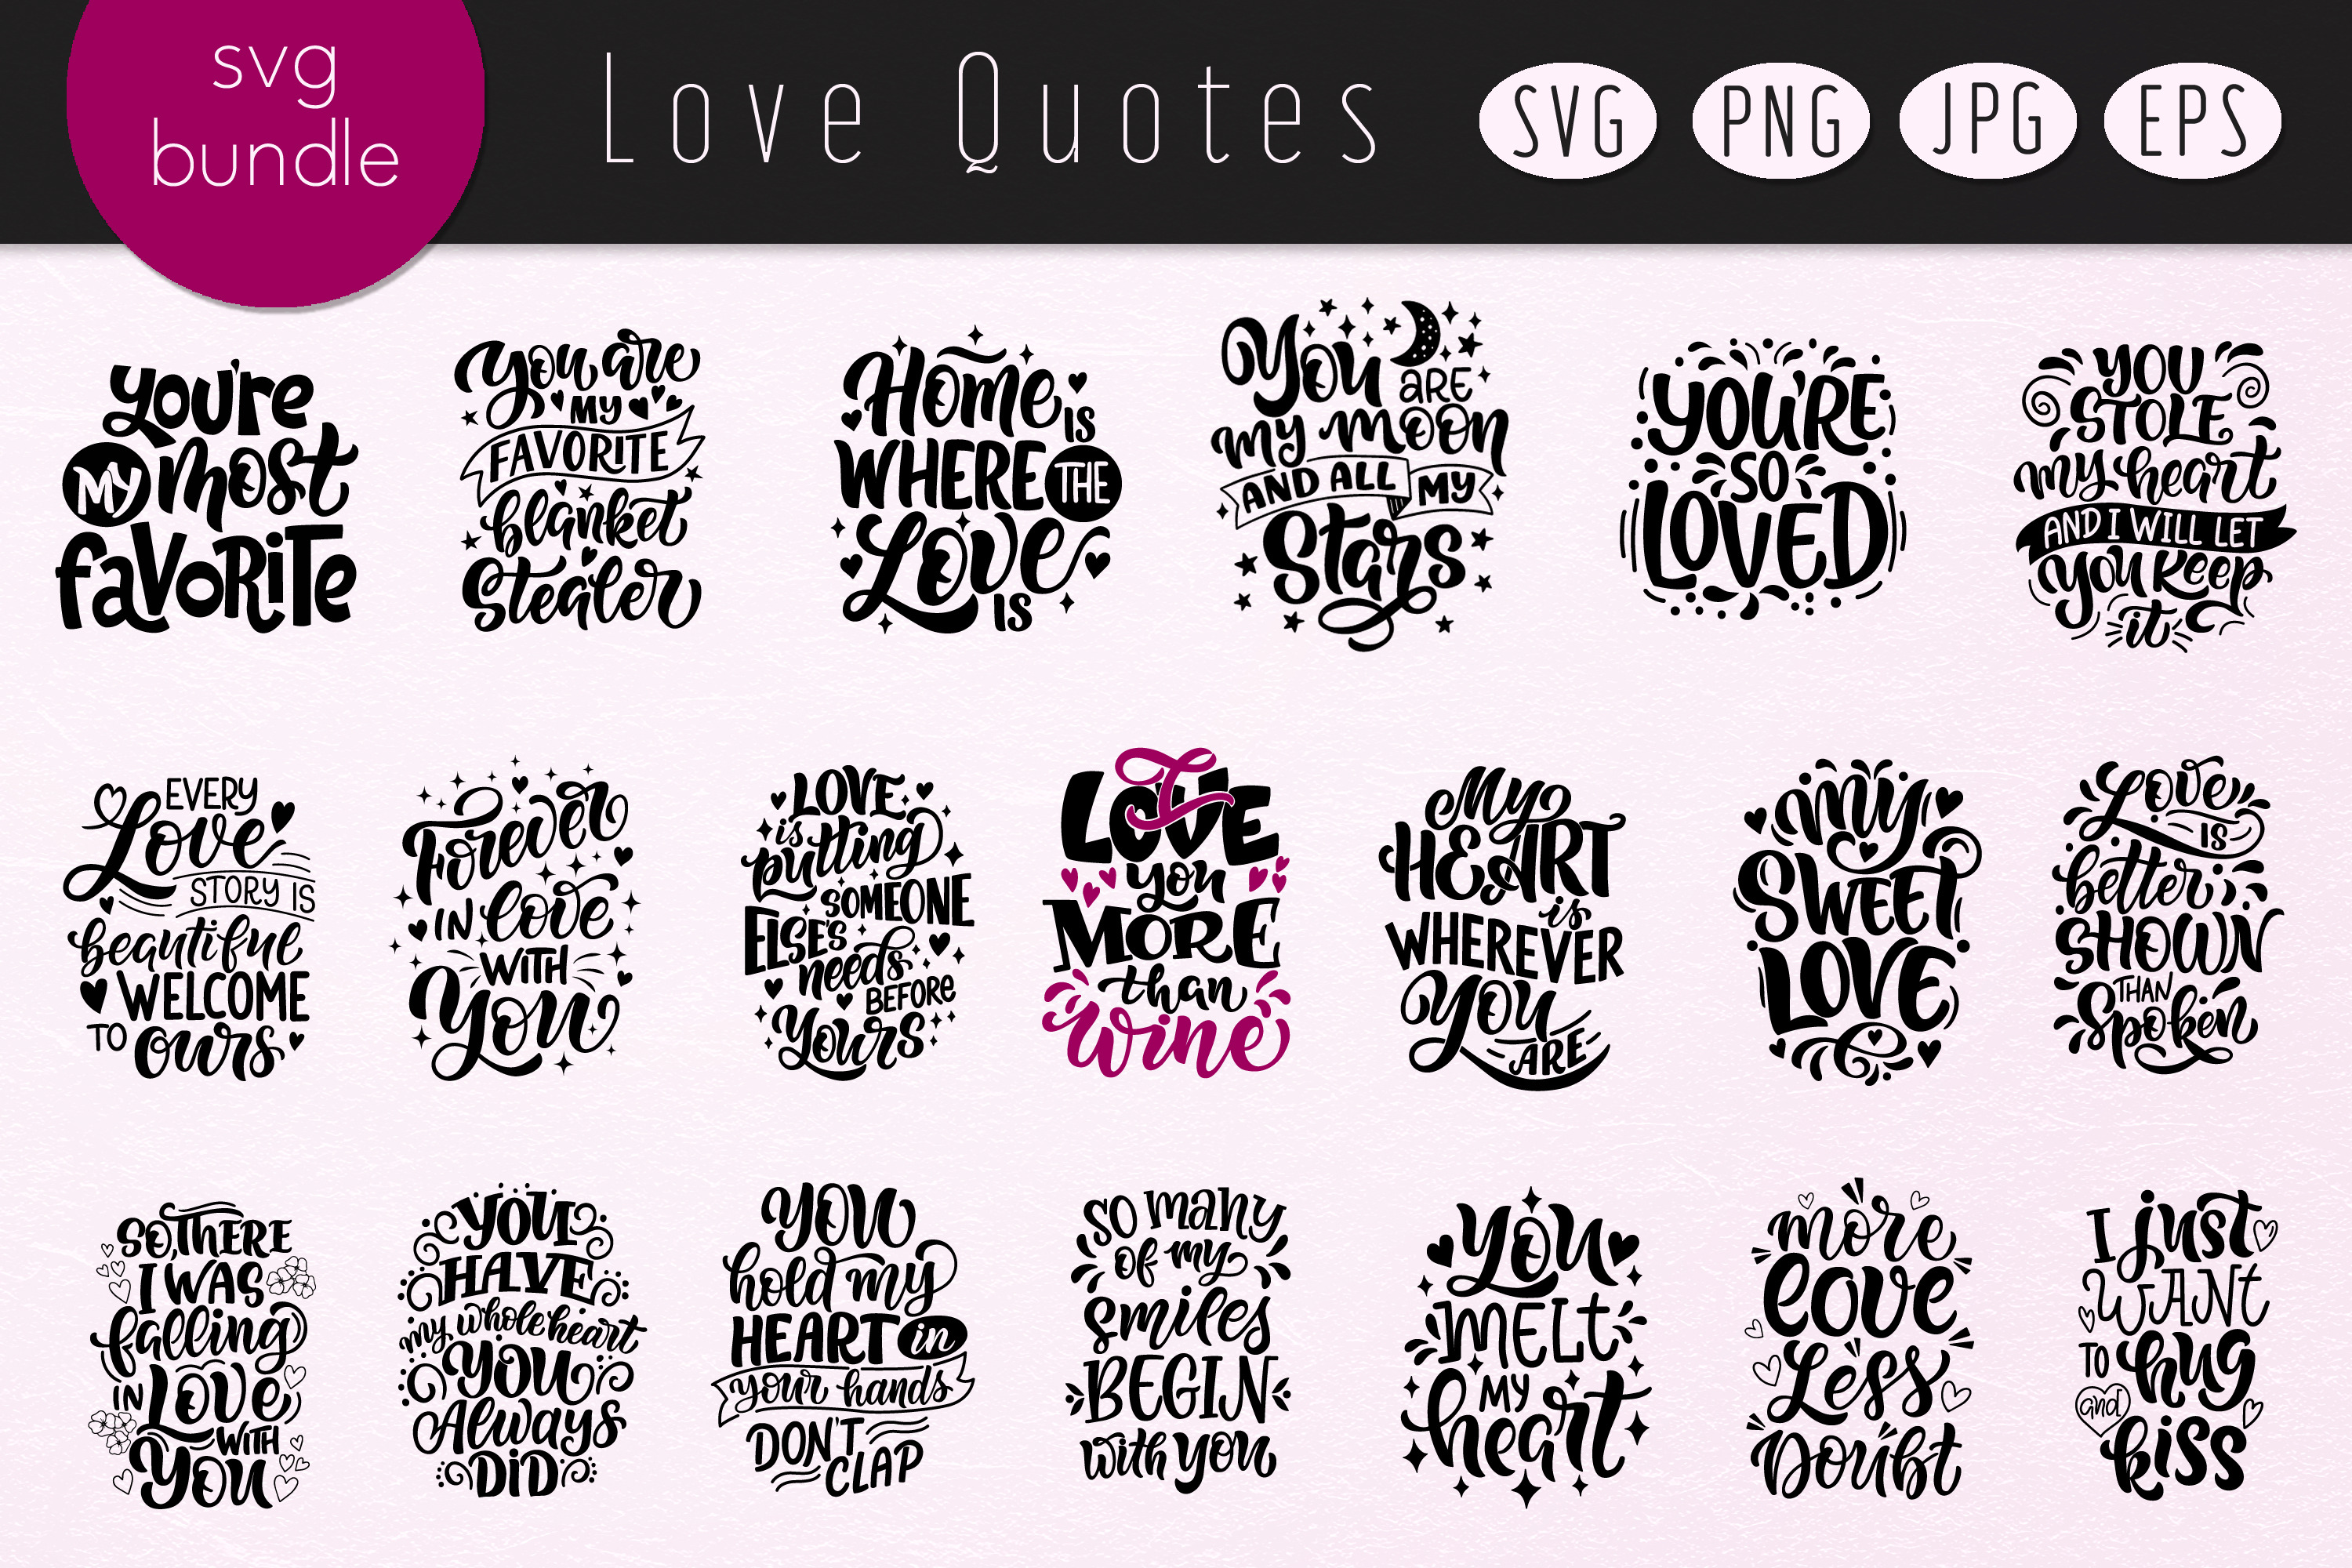 svg
bundle
Love Quotes
SVG PNG JPG EPS
you're
MY most
favorite
You are
MY
FAVORITE
blanket
Stealer
Home IS
WHERE THE
Love
IS
You ARE
my moon
AND ALL MY
Stars
YOU'RE
SO
LOVED
YOU
STOLE
my heart
AND I WILL LET
you keep
it
EVERY
Love
STORY IS
beautiful
WELCOME
TO ours
Forever
IN love
WITH
You
LOVE
is putting
SOMEONE
ELSE'S
needs
BEFORE
Yours
I
LOVE
you
MORE
than
wine
My
HEART
is
WHEREVER
You
ARE
My
SWEET
LOVE
Love
IS
better
SHOWN
THAN
Spoken
SO, THERE
I WAS
falling
IN LOVE
WITH
You
YOU
HAVE
my whole heart
YOU
Always
DID
YOU
hold my
HEART in
your hands
DON'T
CLAP
SO many
of my
smiles
BEGIN
with you
you
MELT
MY
heart
more
love
Less
Doubt
I just
WANt
TO hug
and
kiss